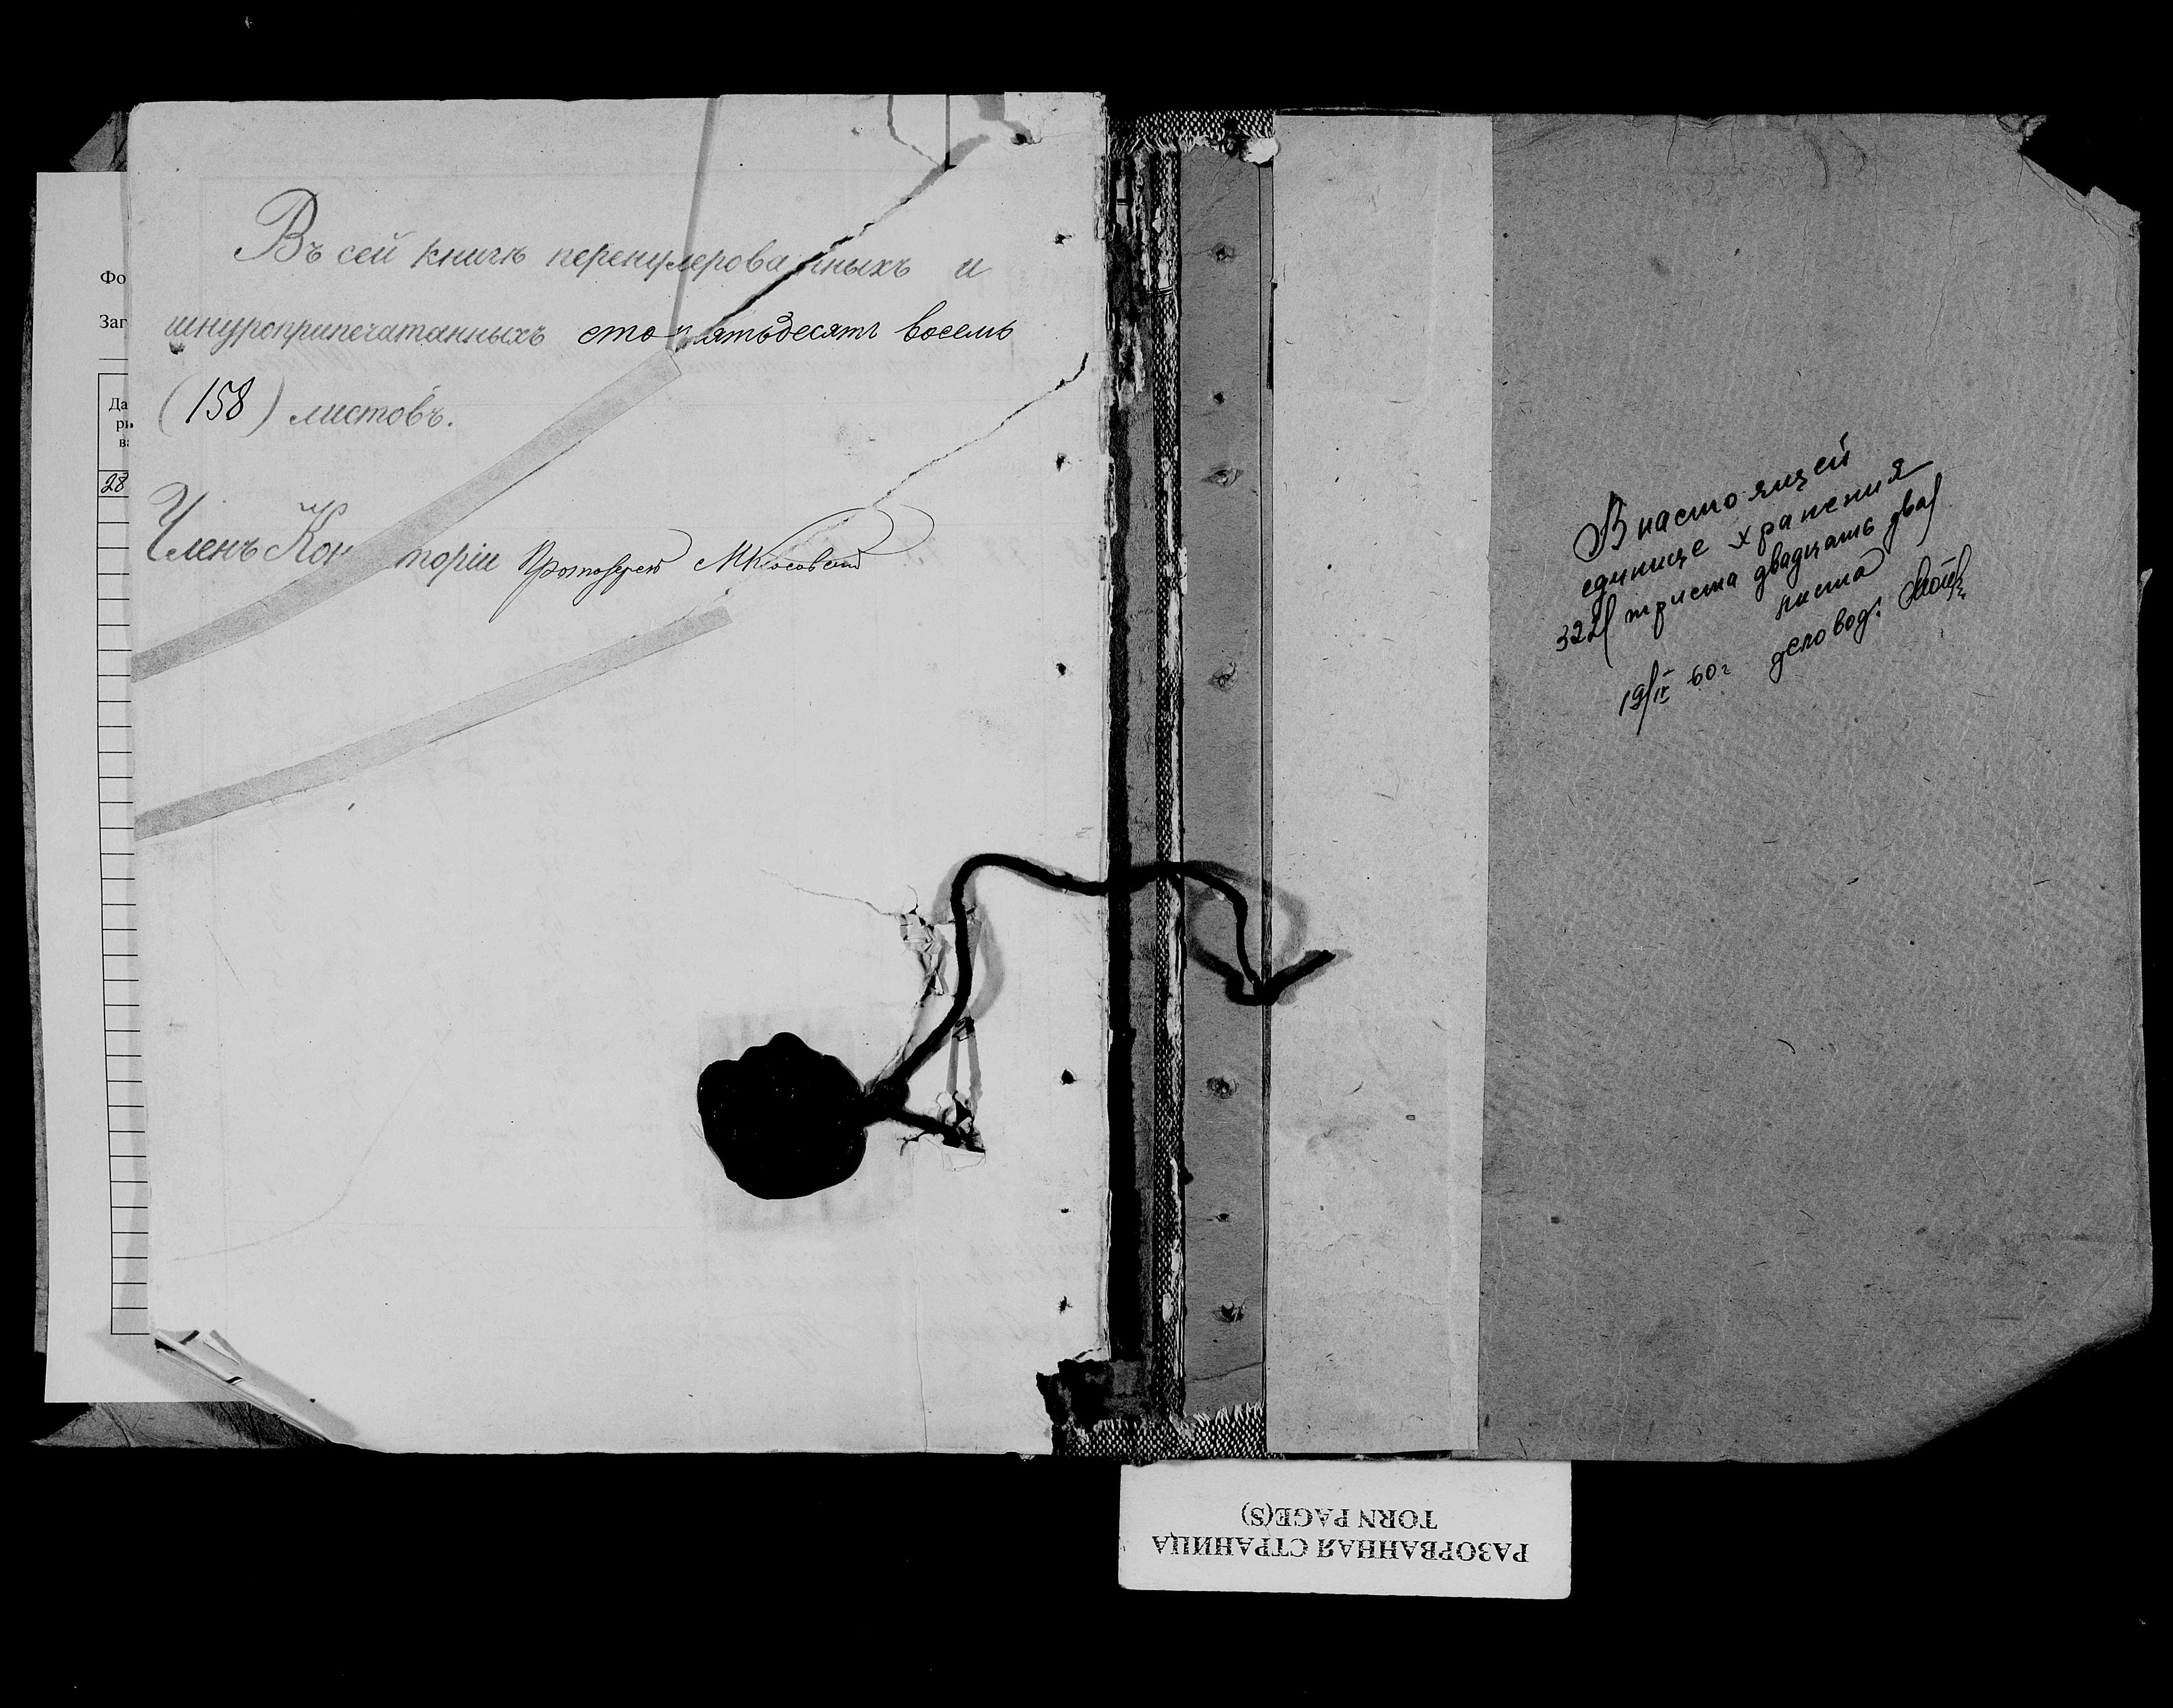 Фо
Заг
Да
ри
ва
28
Въ сей книгѣ перенумерованныхъ и
шнуроприпечатанныхъ сто пятьдесятъ восемь
(158) листовъ.
Членъ Конторіи Протоіерей
В настоящей
единице хранения
322 (триста двадцать два)
листа
19/IV 60г деловод.
РАЗОРВАННАЯ СТРАНИЦА
TORN PAGE(S)